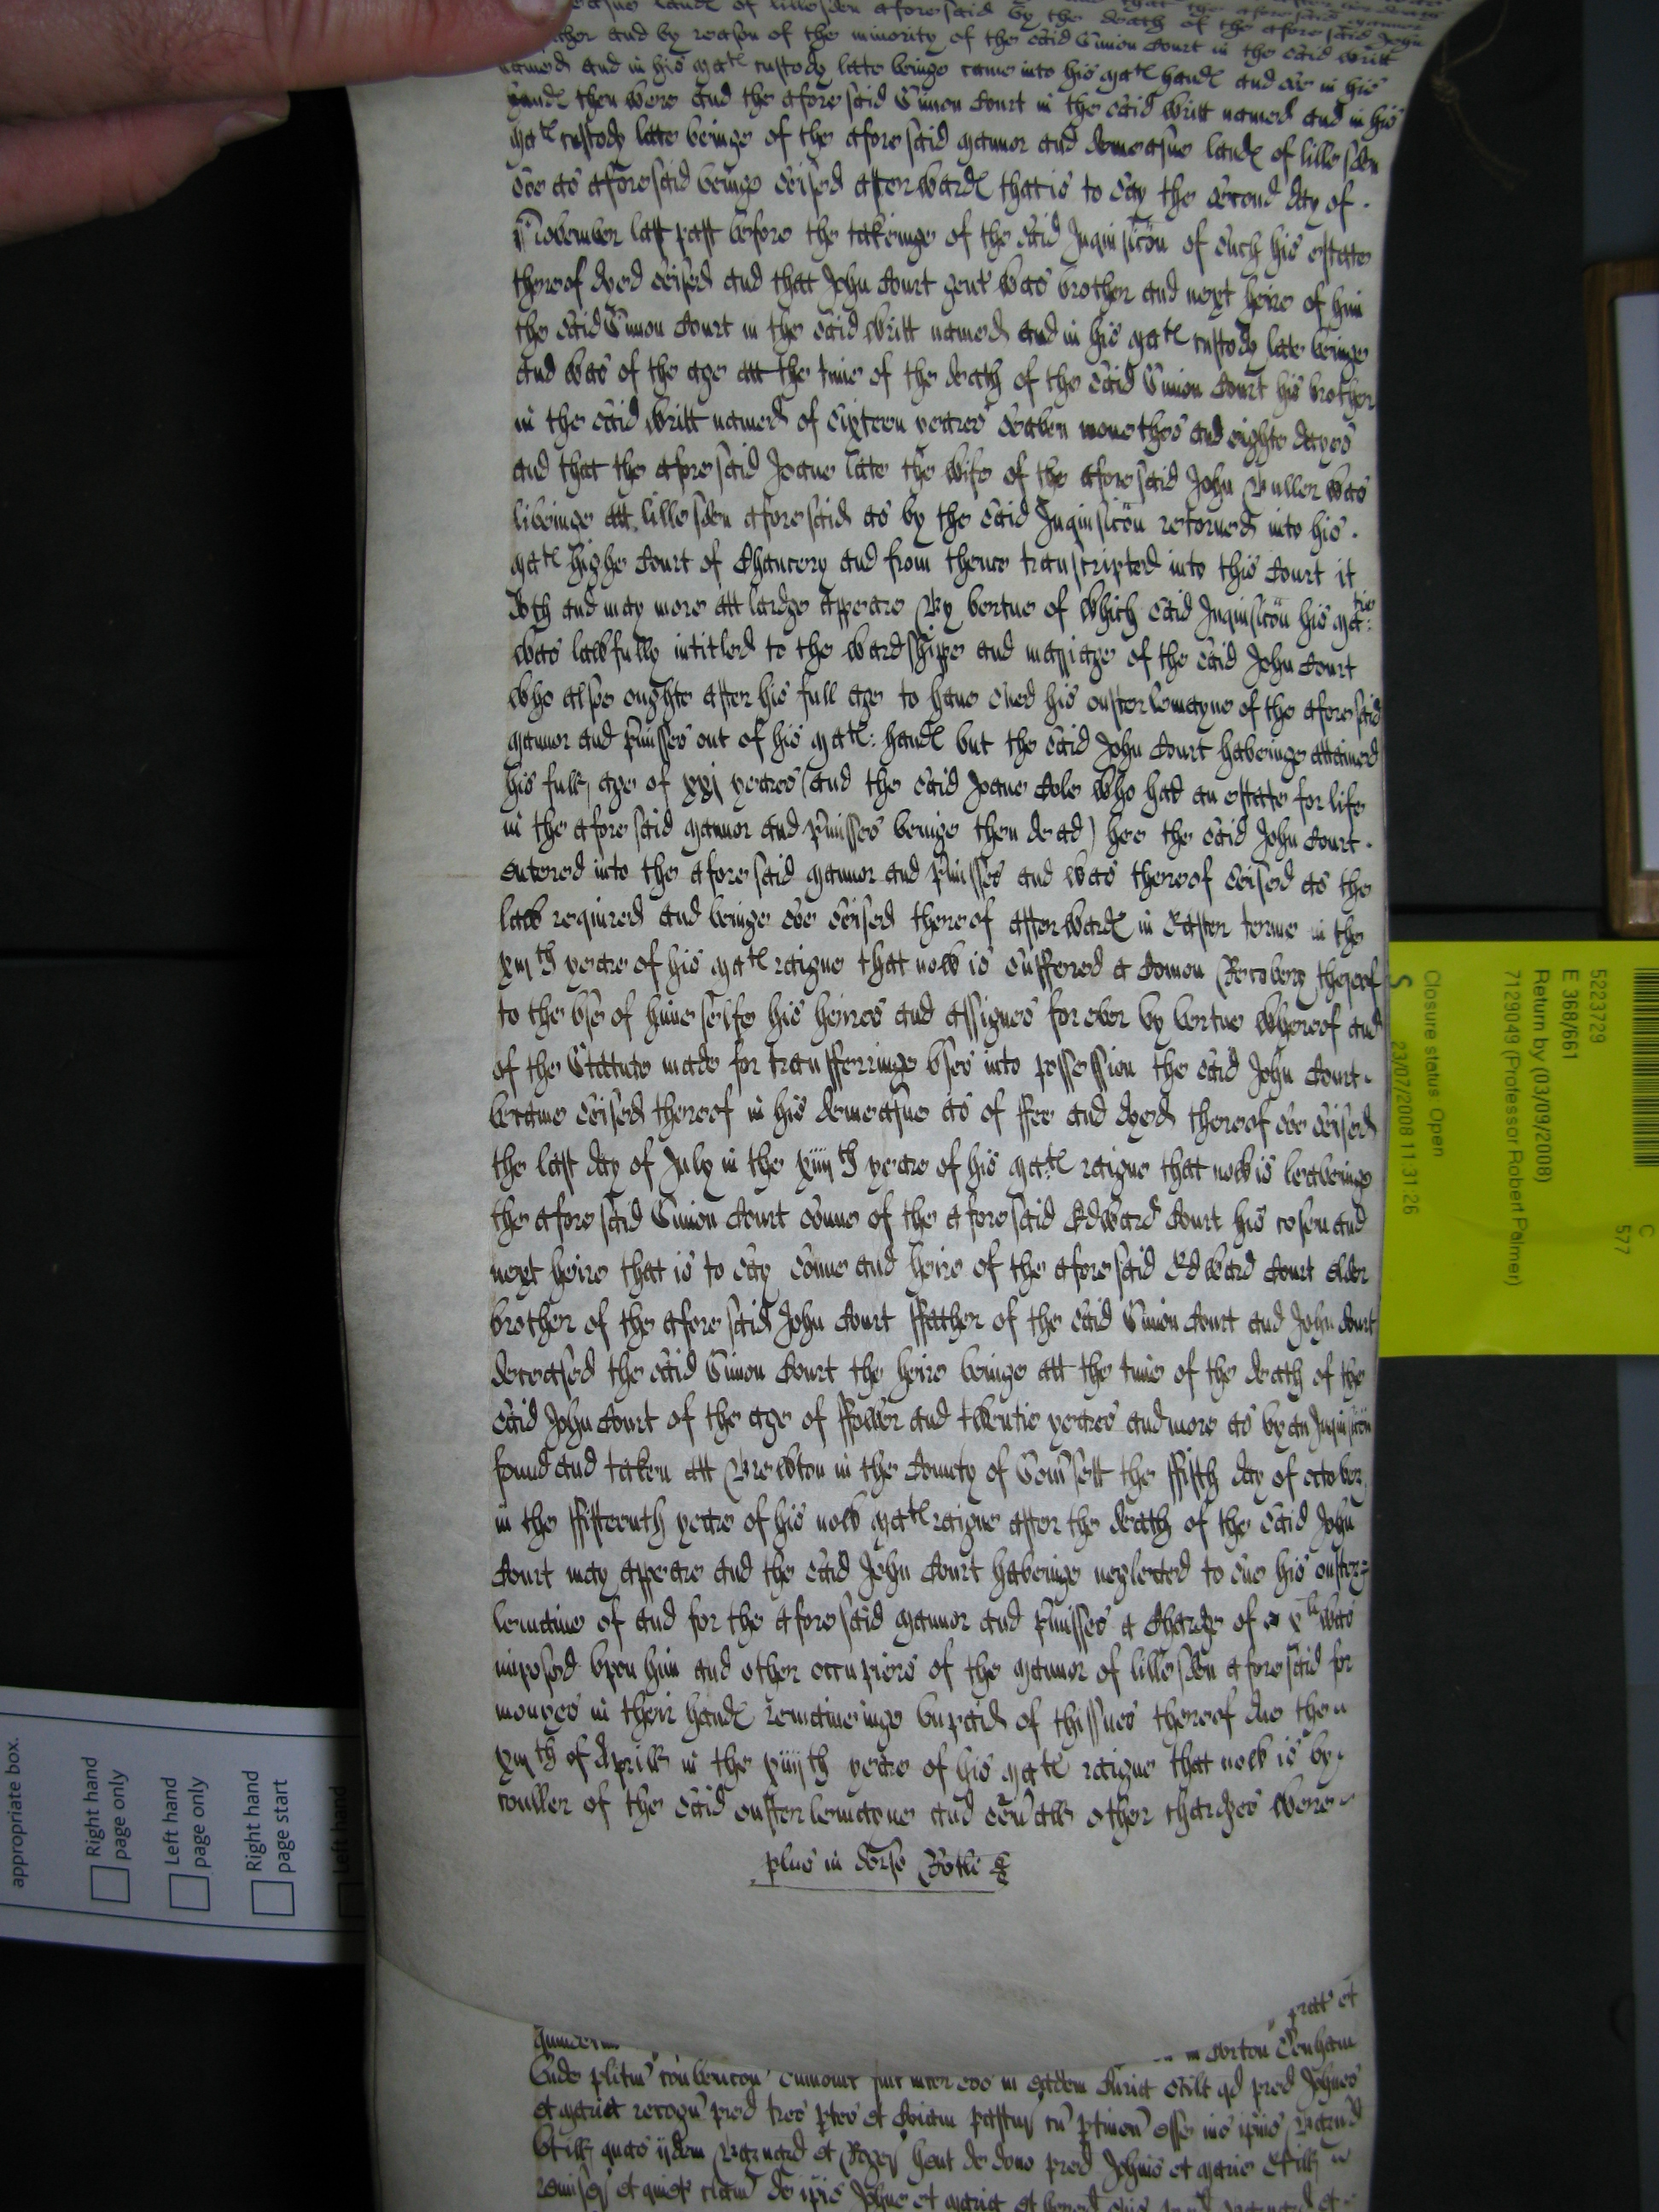 demeasne landes of lillesden aforesaid by the death of the aforesaid John
father and by reason of the minority of the said Simon Court in the said writt
named and in his Ma:tes custody late beinge came into his Ma:tes handes and are in his
handes then were and the aforesaid Simon Court in the said writt named and in his
Ma:tes custody late beinge of the aforesaid Mannor and demeasne landes of lillesden
soe as aforesaid beinge seised afterwardes that is to say the second day of
November last past before the takeinge of the said Inquisicon of such his estate
thereof dyed seised and that John Court gent was brother and next heire of him
the said Simon Court in the said writt named and in his Ma:tes custody late beinge
and was of the age att the time of the death of the said Simon Court his brother
in the said writt named of sixteen yeares seaven monethes and eighte dayes
and that the aforesaid Joane late the wife of the aforesaid John Buller was
liveinge att lillesden aforesaid as by the said Inquisicon retorned into his
Ma:tes highe Court of Chancery and from thence transcripted into this Court it
doth and may more att lardge appeare By vertue of which said Inquisicon his Ma:tie
was lawfully intitled to the wardshippe and marriage of the said John Court
who alsoe oughte after his full age to have sued his ousterlemayne of the aforesaid
Mannor and pmisses out of his Ma:tes handes but the said John Court haveinge attained
his full age of xxj yeares (and the said Joane Cole who had an estate for life
in the aforesaid Mannor and pmisses beinge then dead) hee the said John Court
entered into the aforesaid Mannor and pmisses and was thereof seised as the
law required and beinge soe seised thereof afterwardes in Easter terme in the
xiijth yeare of his Ma:tes raigne that now is suffered a Comon Recovery thereof
to the use of himeselfe his heires and assignes for ever by vertue whereof and
of the Statute made for transferringe uses into possession the said John Court
became seised thereof in his demeasne as of ffee and dyed thereof soe seised
the last day of July in the xiiijth yeare of his Ma:tes raigne that now is leaveinge
the aforesaid Simon Court sonne of the aforesaid Edward Court his cosen and
next heire that is to say sonne and heire of the aforesaid Edward Court elder
brother of the aforesaid John Court ffather of the said Simon Court and John Court
deceased the said Simon Court the heire beinge att the time of the death of the
said John Court of the age of ffower and twentie yeares and more as by an Inquisicon
found and taken att Brewton in the County of Somsett the ffifth day of october
in the ffifteenth yeare of his now Ma:tes raigne after the death of the said John
Court may appeare and the said John Court haveinge neglected to sue his ouster
lemaine of and for the aforesaid Mannor and pmisses a Chardge of xli was
imposed upon him and other occupiers of the Mannor of lillesden aforesaid for
moneyes in their handes remaineinge unpaid of thissues thereof due the
xijth of Aprill in the xiiijth yeare of his Ma:tes raigne that now is by
couller of the said ousterlemayne and seuall other chardges were
plus in dorso Rotli &c
prat et
Unde plitm convencon sumonit fuit inter eos in eadem Curia Scilt qd pred Johnes
et Maria recogn pred tres ptes et Coiam pasture cu ptinen esse ius ipius Barnard
Ut ill quas ijdem Barnard et Roger hent de dono pred Johnis et Marie Et ill
remiser et quiet clam de ipis Johne et Maria et hered
5223729
E 368/661
Return by (03/09/2008)
7129049 (Professor Robert Palmer)
Closure status: Open
S 23/07/2008 11:31:26
C
577
appropriate box.
Right hand
page only
Left hand
page only
Right hand
page start
Left hand